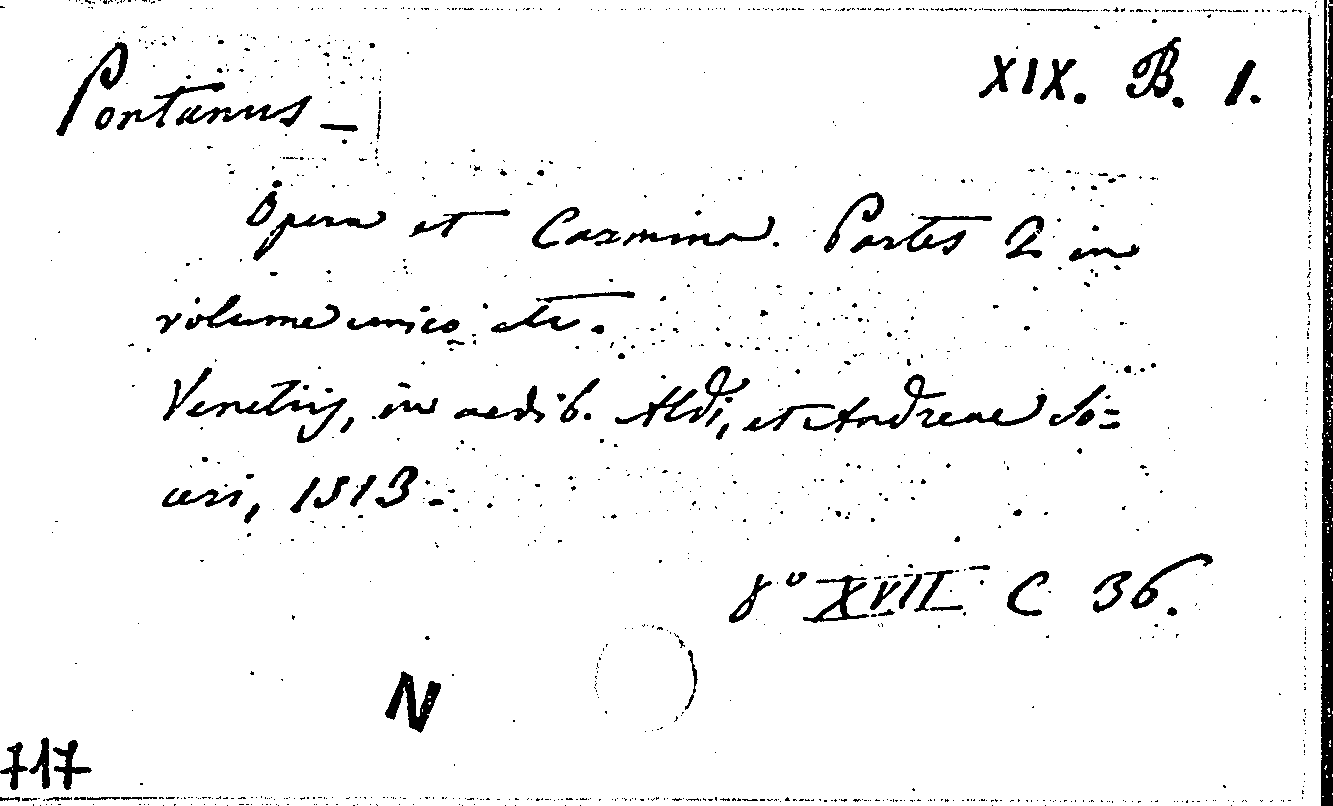 Pontanus –
XIX. B. 1.
Opera et Carmina. Partes 2 in
volume unico etc.
Venetiis, in aedib. Aldi, et Andreae So=
ceri, 1513 –
8º XVII C 36.
N
717